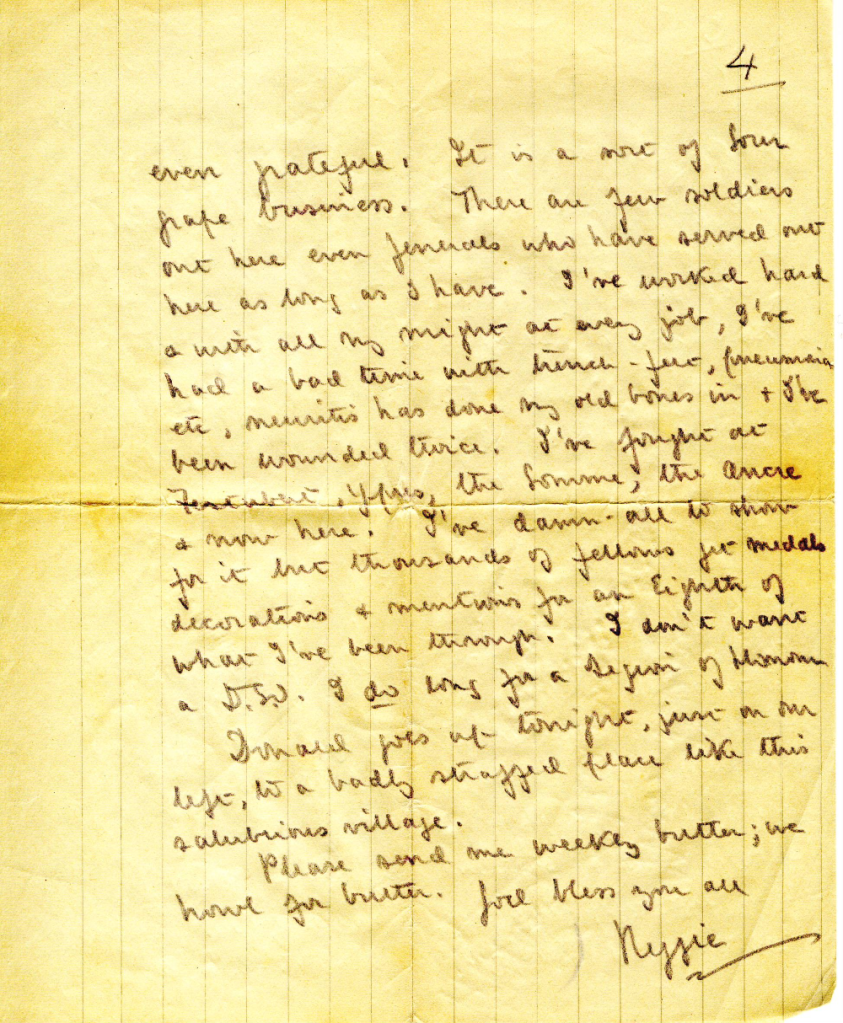 4
even grateful. It is a sort of sour
grape business. There are few soldiers
out here even generals who have served out
here as long as I have. I've worked hard
& with all my might at every job, I've
had a bad time with trench-feet, pneumonia
etc, neuritis has done my old bones in & I've
been wounded twice. I've fought at
Festubert, Ypres, the Somme, the Ancre
& now here. I've damn-all to show
for it but thousands of fellows get medals
decorations & mentions for an Eighth of
what I've been through. I don't want
a D.S.O. I do long for a Legion of Honour
Donald goes up tonight, just on our
left, to a badly straffed place like this
salubrious village.
Please send me weekly butter; we
howl for butter. God bless you all